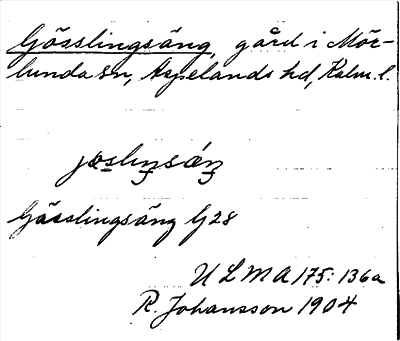 Gösslingsäng, gård i Mör-
lunda sn, Aspelands hd, Kalm. l.
Gässlingsäng G 28
ULMA 175: 136a
R. Johansson 1904